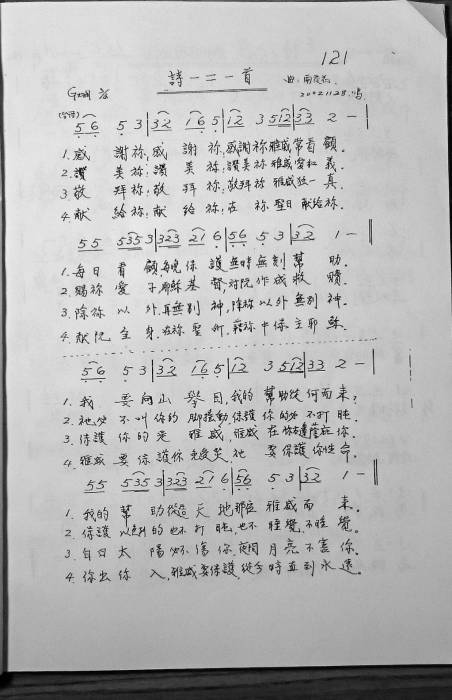 121
詩一二一首
2002.11.28
5 6 5 3 | 3 2 1 6 5 | 1 2 3 5 1 2 | 3 3 2 - |
1. 感 謝祢,感 謝祢,感謝祢雅威常看顧.
2. 讚 美祢,讚 美祢,讚美祢雅威愛和義.
3. 敬 拜祢,敬 拜祢,敬拜祢雅威独一真.
4. 献 給祢,献 給祢,在祢聖日献給祢.
5 5 5 3 5 3 | 3 2 3 2 1 6 | 5 6 5 3 | 3 2 1 - ‖
1. 每日看 顧每晚保護無時無刻幫 助.
2. 賜祢愛 子耶穌基督 作成救 贖.
3. 除祢以 外再無別神,除祢以外無別 神.
4. 献 全 身在祢聖所,藉祢中保主耶 穌.
5 6 5 3 | 3 2 1 6 5 | 1 2 3 5 1 2 | 3 3 2 - |
1. 我 要向山 舉目,我的幫助從何而來?
2. 祂必 不叫你的 脚搖動,保護你的必不打盹.
3. 保護 你的是 雅威,雅威在你右邊蔭庇你.
4. 雅威 要保護你免受災,祂 要保護你性命.
5 5 5 3 5 3 | 3 2 3 2 1 6 | 5 6 5 3 | 3 2 1 - ‖
1. 我的幫 助從造天地那位雅威而 來.
2. 保護以色列的也不打盹,也不睡覺,不睡 覺.
3. 白日太 陽必不傷你,夜間月亮不害 你.
4. 你出你 入,雅威要保護,從今時直到永 遠.